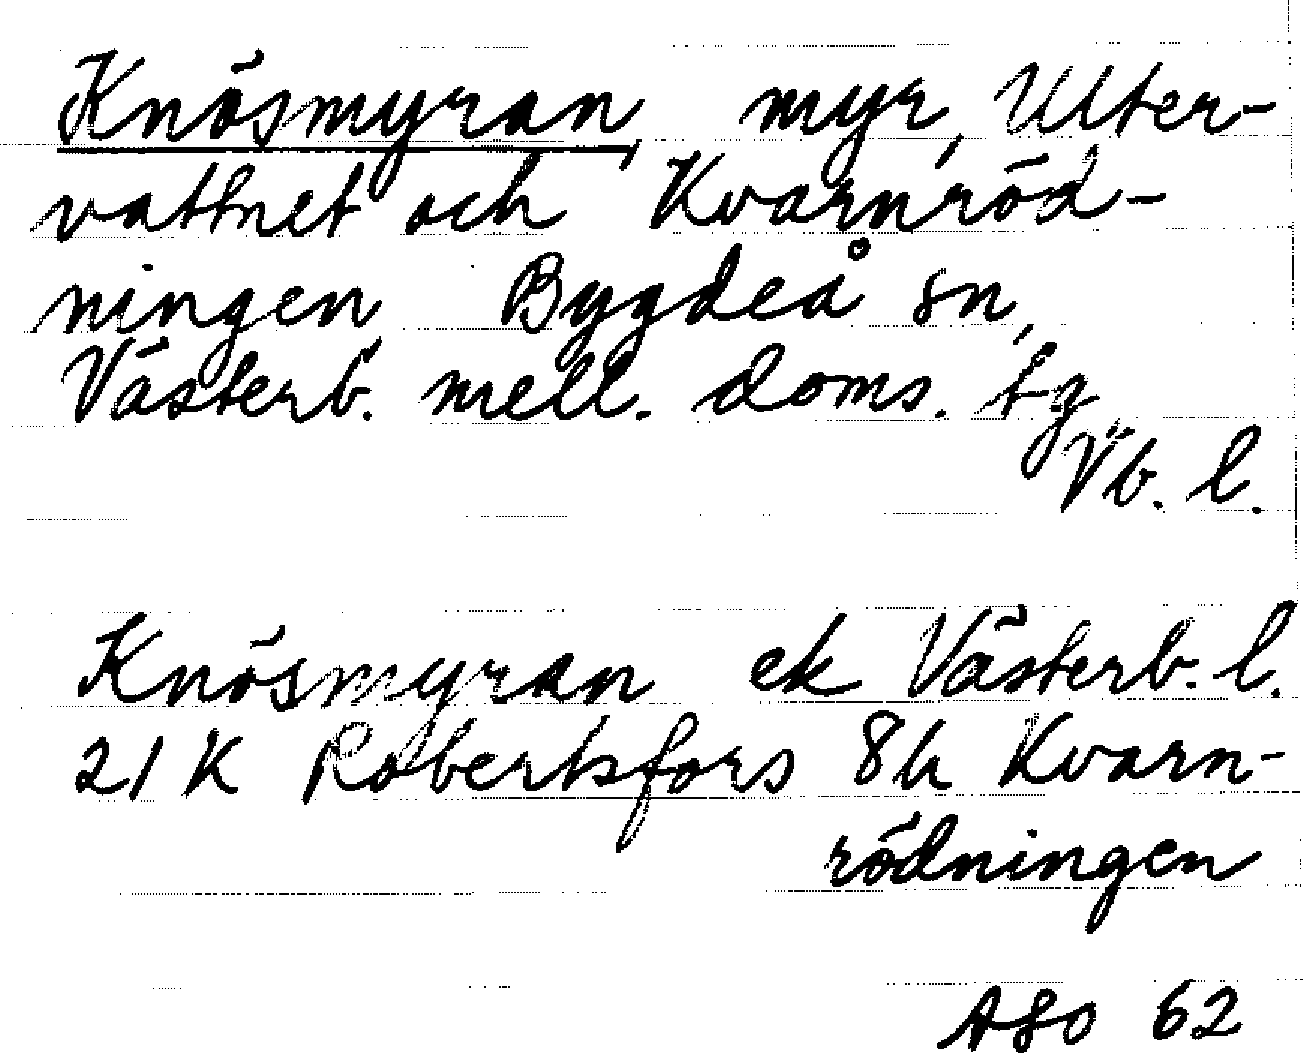 Knösmyran, myr, Ulter-
vattnet och Kvarnröd-
ningen Bygdeå sn,
Västerb. mell. doms. tg
Vb. l.
Knösmyran ek Västerb. l.
21 K Robertsfors 8h Kvarn-
rödningen
ASO 62